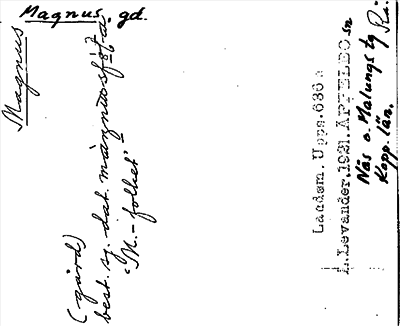 Magnus, gd.
Magnus
(gård)
best. sg. dat.
"M.-folket"
Landsm. Upps. 636
L. Levander. 1921. ÄPPELBO sn
Nås o. Malungs tg
Kopp. län.